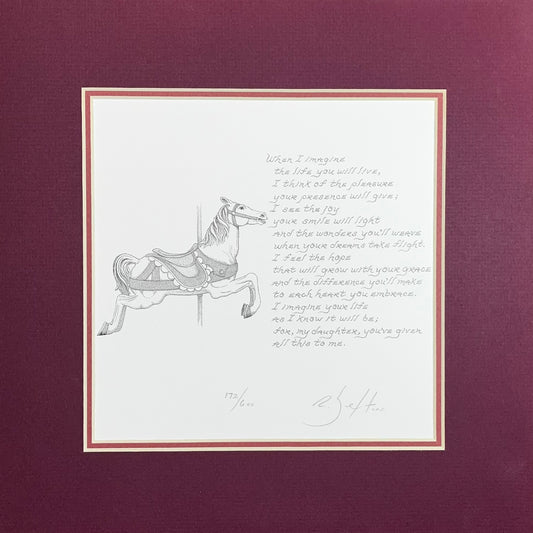 When I imagine
the life you will live,
I think of the pleasure
your presence will give;
I see the joy
your smile will light
and the wonders you'll weave
when your dreams take flight.
I feel the hope
that will grow with your grace
and the difference you'll make
to each heart you embrace.
I imagine your life
as I know it will be;
for, my daughter, you've given
all this to me.